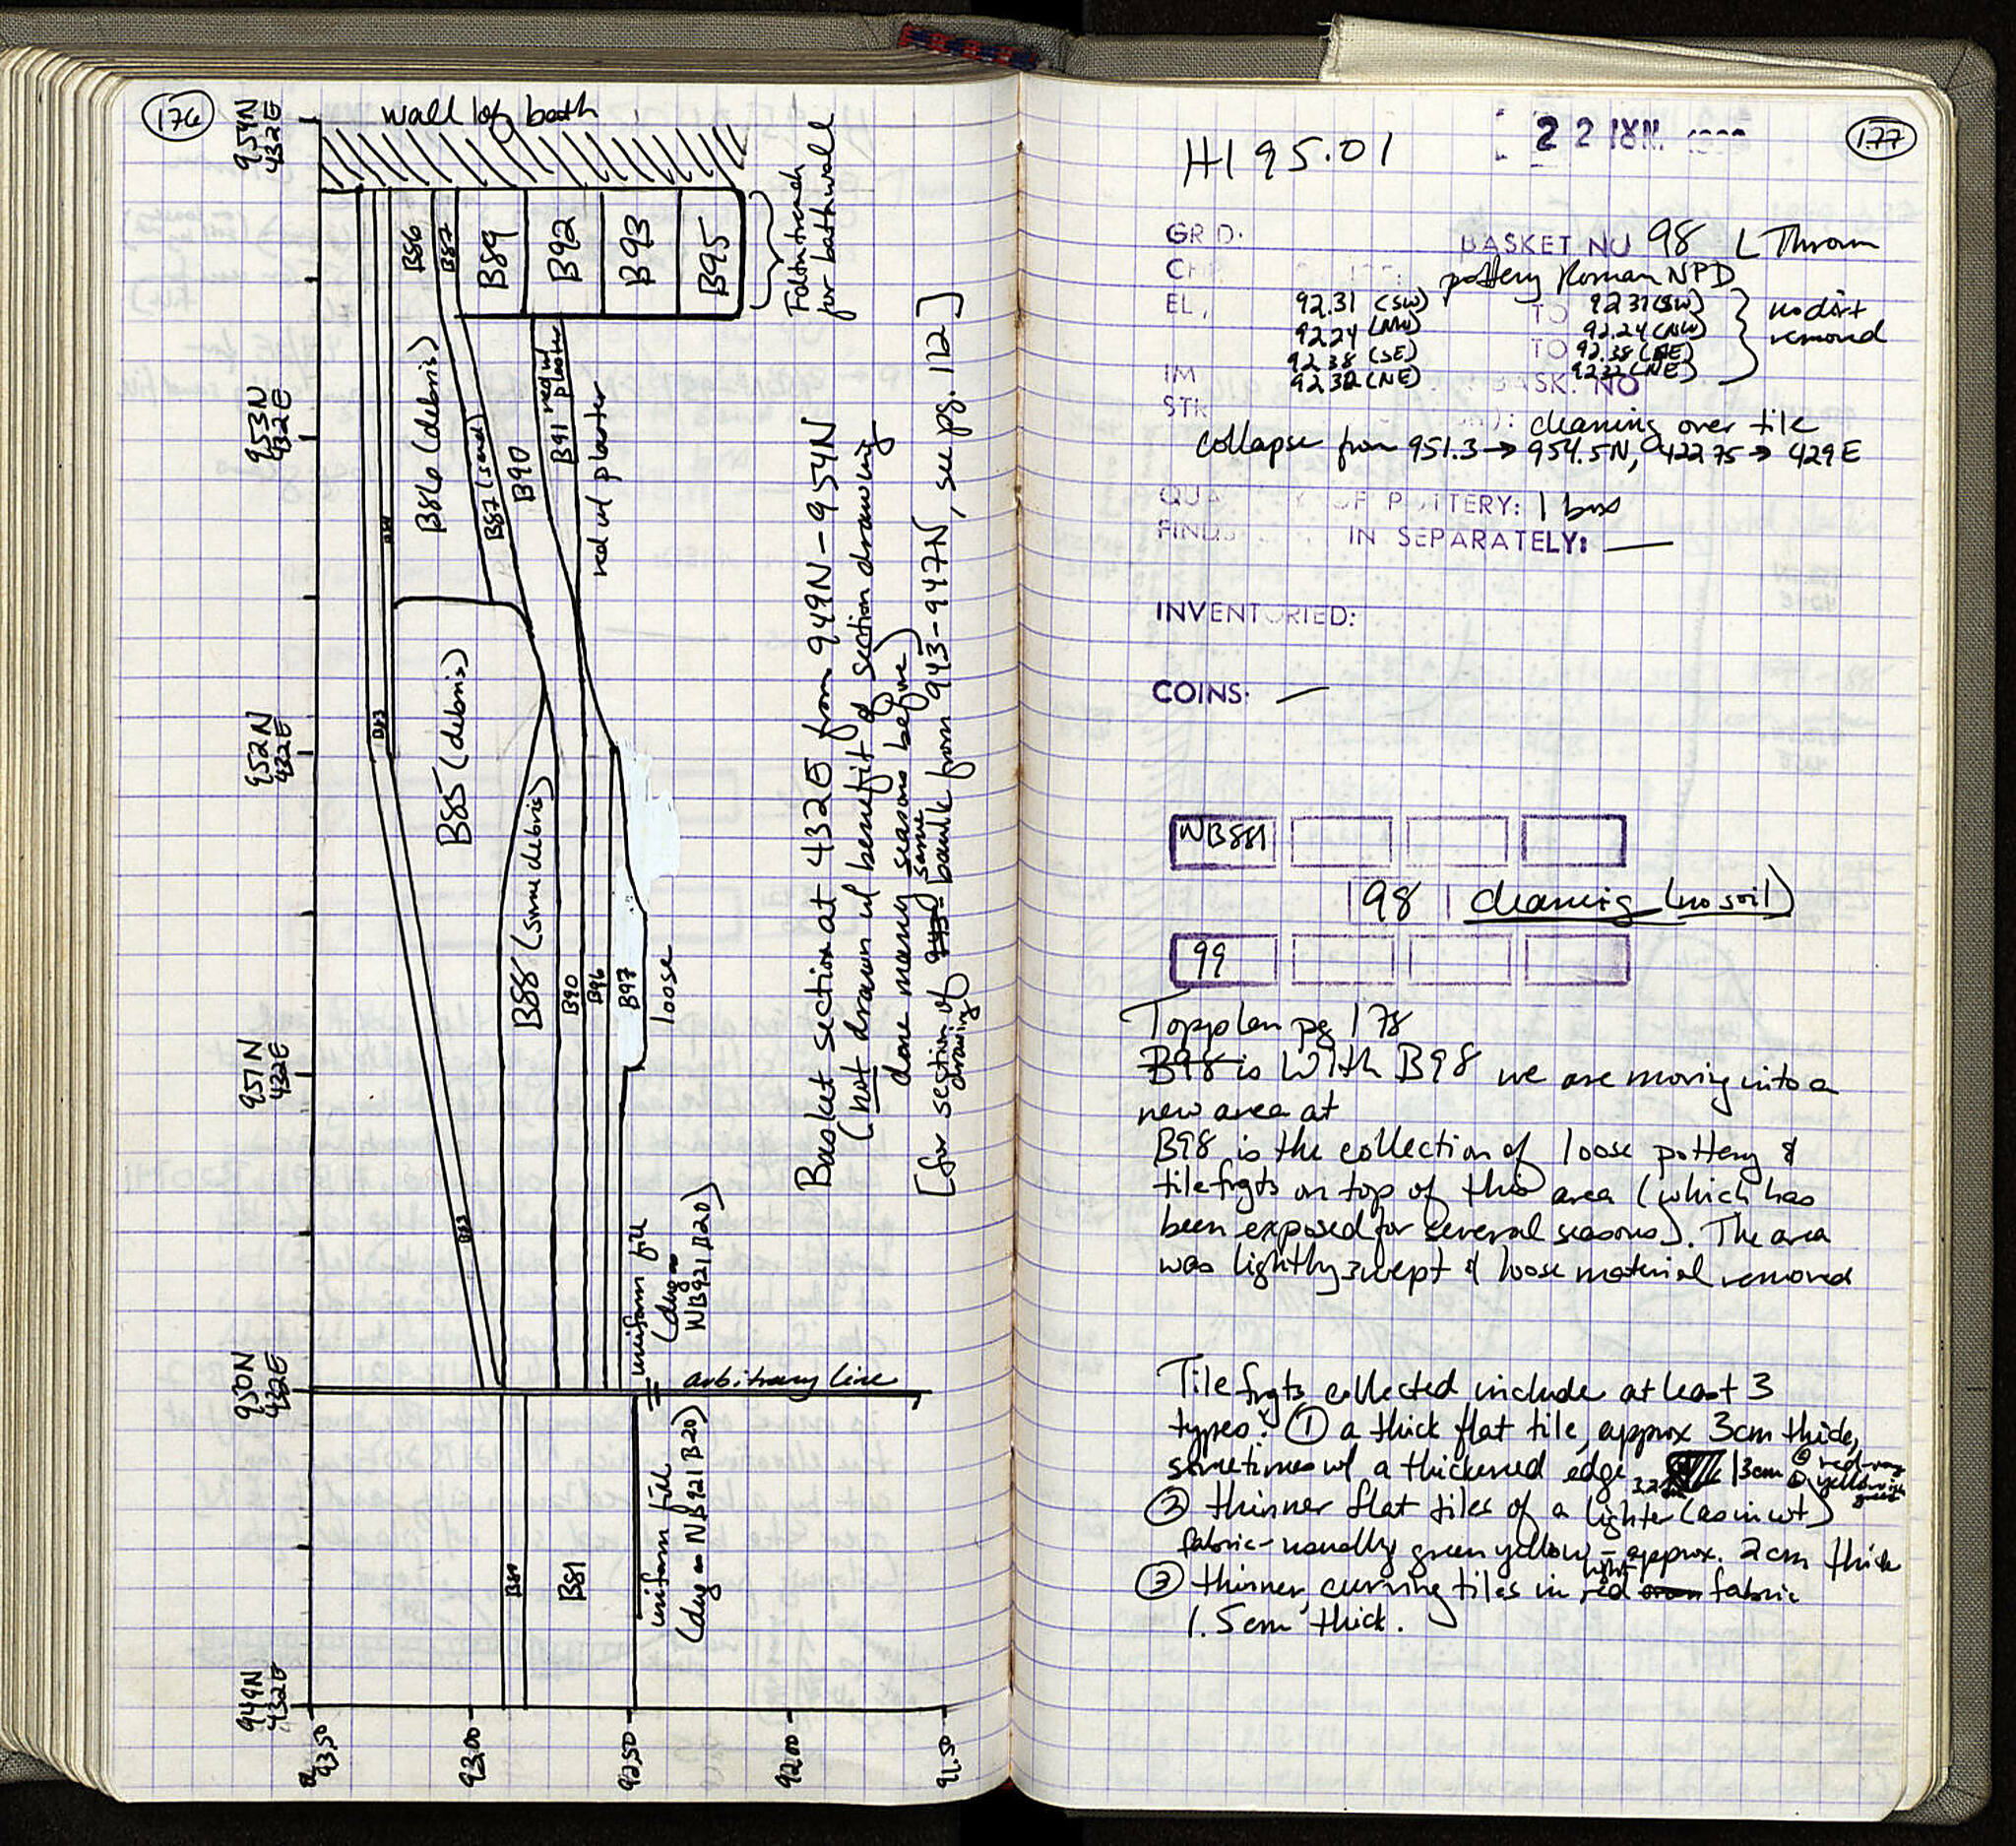 176
wall of bath
954N
432E
953N
432E
952N
432E
951N
432E
950N
432E
949N
432E
93.50
93.00
92.50
92.00
91.50
B86
B87
B89
B92
B93
B95
Fdtn trench
for bath wall
B86 (debris)
B87 (sand)
B90
B91 red w/
plaster
red w/ plaster
B83
B85 (debris)
B88 (some debris)
B90
B96
B97
loose
B83
uniform fill
(dug as
NB921 B20)
arbitrary line
B80
B81
uniform fill
(dug as NB921 B20)
Basket section at 432E from 949N-954N
(not drawn w/ benefit of section drawing
done many seasons before)
[for section drawing of same baulk from 943-947N, see pg. 112]
177
H195.01
22 ΙΟΥΝ.
GRID:
BASKET NO 98 L Thrown
pottery Roman NPD
EL.
92.31 (SW) TO 92.31 (SW)
92.24 (NW) 92.24 (NW)
92.38 (SE) TO 92.38 (SE)
92.32 (NE) 92.32 (NE)
no dirt
removed
IM BASK. NO
STR : cleaning over tile
collapse from 951.3 → 954.5N, 422.75 → 429E
QUA Y OF POTTERY: 1 box
FINDS IN SEPARATELY: —
INVENTORIED:
COINS: —
NB881
98 cleaning (no soil)
99
Topplan pg 178
B98 is With B98 we are moving into a
new area at
B98 is the collection of loose pottery &
tile frgts on top of this area (which has
been exposed for several seasons). The area
was lightly swept & loose material removed
Tile frgts collected include at least 3
types: ① a thick flat tile, approx 3cm thick,
sometimes w/ a thickened edge 3.2 3cm
② thinner flat tiles of a lighter (as in wt)
fabric - usually green yellow - approx. 2cm thick
③ thinner, curving tiles in light red fabric
1.5cm thick.